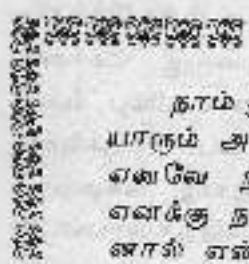 நாம்
யாரும் அ
எனவே ந
எனக்கு ந
னால் என